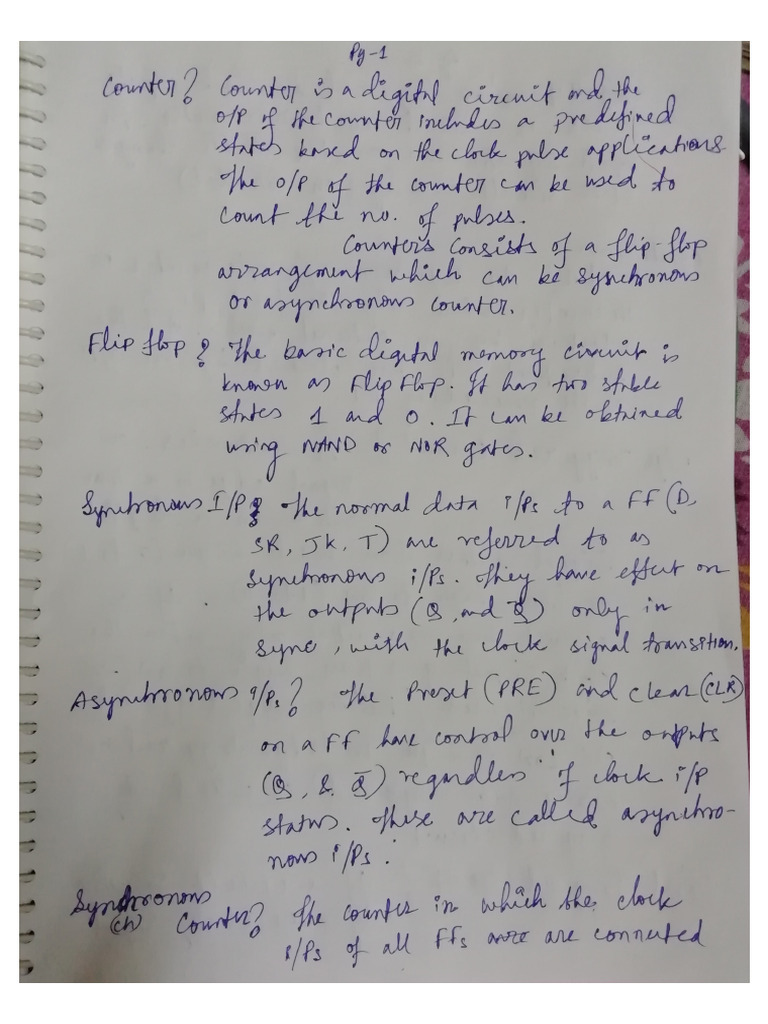 Pg-1
Counter? Counter is a digital circuit and the
o/p of the counter includes a predefined
states based on the clock pulse applications.
The o/p of the counter can be used to
count the no. of pulses.
Counters consists of a flip-flop
arrangement which can be synchronous
or asynchronous counter.
Flip flop? The basic digital memory circuit is
known as Flip Flop. It has two stable
states 1 and 0. It can be obtained
using NAND or NOR gates.
Synchronous I/P? The normal data i/Ps to a FF (D,
SR, JK, T) are referred to as
synchronous i/Ps. They have effect on
the outputs (Q, and Q̅) only in
sync, with the clock signal transition.
Asynchronous i/Ps? The Preset (PRE) and clear (CLR)
on a FF have control over the outputs
(Q, & Q̅) regardless of clock i/p
status. These are called asynchro-
nous i/Ps.
Synchronous
(ch) Counter? The counter in which the clock
i/Ps of all FFs are connected